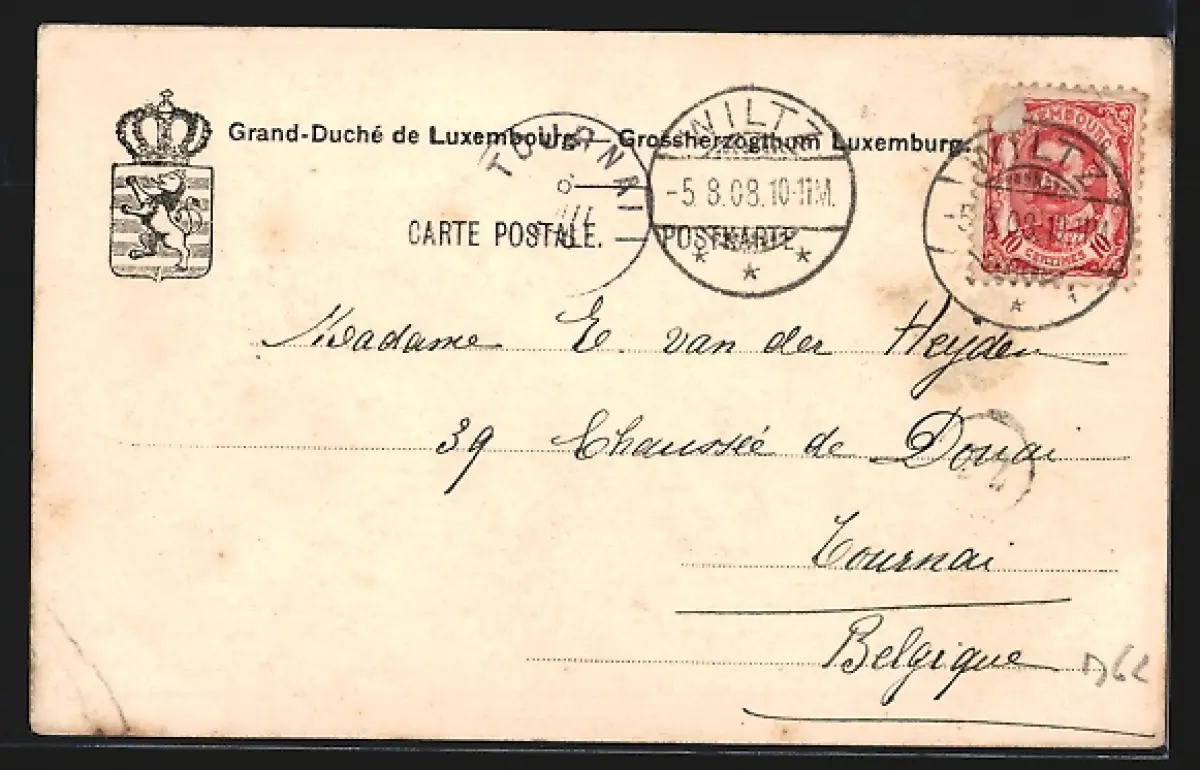 Grand-Duché de Luxembourg. — Grossherzogthum Luxemburg.
CARTE POSTALE. POSTKARTE
TOURNAI
WILTZ
-5.8.08.10-11M.
LUXEMBOURG
10 CENTIMES 10
WILTZ
Madame E. van der Heyden
39 Chaussée de Douai
Tournai
Belgique